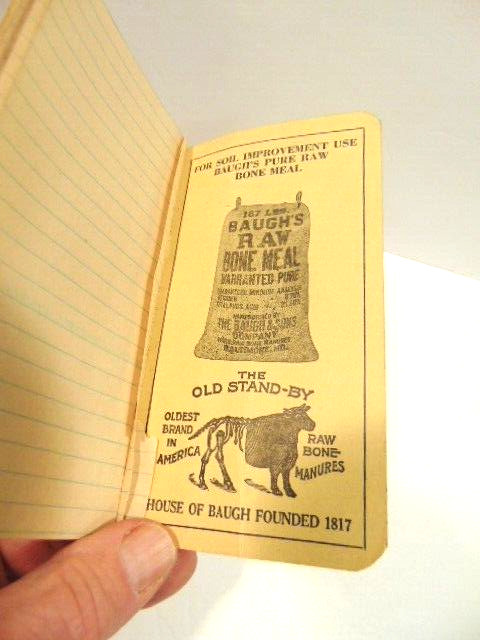 FOR SOIL IMPROVEMENT USE
BAUGH'S PURE RAW
BONE MEAL
167 LBS.
BAUGH'S
RAW
BONE MEAL
WARRANTED PURE
GUARANTEED MINIMUM ANALYSIS
MANUFACTURED BY
THE BAUGH & SONS
COMPANY
BALTIMORE, MD.
THE
OLD STAND-BY
OLDEST
BRAND
IN
AMERICA
RAW
BONE
MANURES
HOUSE OF BAUGH FOUNDED 1817